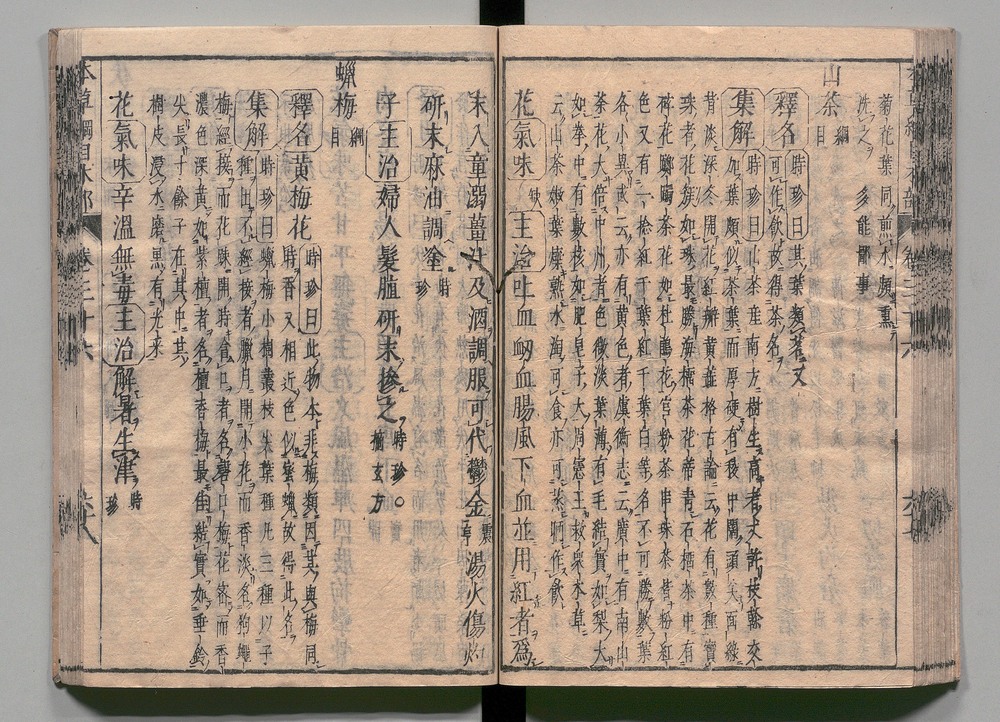 菊花葉同煎水頻熏
洗之 多能鄙事
山茶 綱目
釋名 時珍曰其葉類茗又
可作飲故得茶名
集解 時珍曰山茶産南方樹生高者丈許枝幹交
加葉頗似茶葉而厚硬有稜中闊頭尖面綠
背淡深冬開花紅瓣黃蕊格古論云花有數種寶
珠者花簇如珠最勝海榴茶花蒂青石榴茶中有
碎花躑躅茶花如杜鵑花宮粉茶串珠茶皆粉紅
色又有一捻紅千葉紅千葉白等名不可勝數葉
各小異或云亦有黃色者虞衡志云廣中有南山
茶花大倍中州者色微淡葉薄有毛結實如梨大
如拳中有數核如肥皂子大周憲王救荒本草
云山茶嫩葉煠熟水淘可食亦可蒸晒作飲
花氣味 缺 主治吐血衄血腸風下血並用紅者爲
末入童溺薑汁及酒調服可代鬱金 震亨 湯火傷灼
研末麻油調塗 時珍
子主治婦人髮䐈研末摻之 時珍○摘玄方
蠟梅 綱目
釋名 黃梅花 時珍曰此物本非梅類因其與梅同
時香又相近色似蜜蠟故得此名
集解 時珍曰蠟梅小樹叢枝尖葉種凡三種以子
種出不經接者臘月開小花而香淡名狗蠅
梅經接而花疎開時含口者名磬口梅花密而香
濃色深黃如紫檀者名檀香梅最佳結實如垂鈴
尖長寸餘子在其中其
樹皮浸水磨墨有光采
花氣味辛溫無毒主治解暑生津 時珍